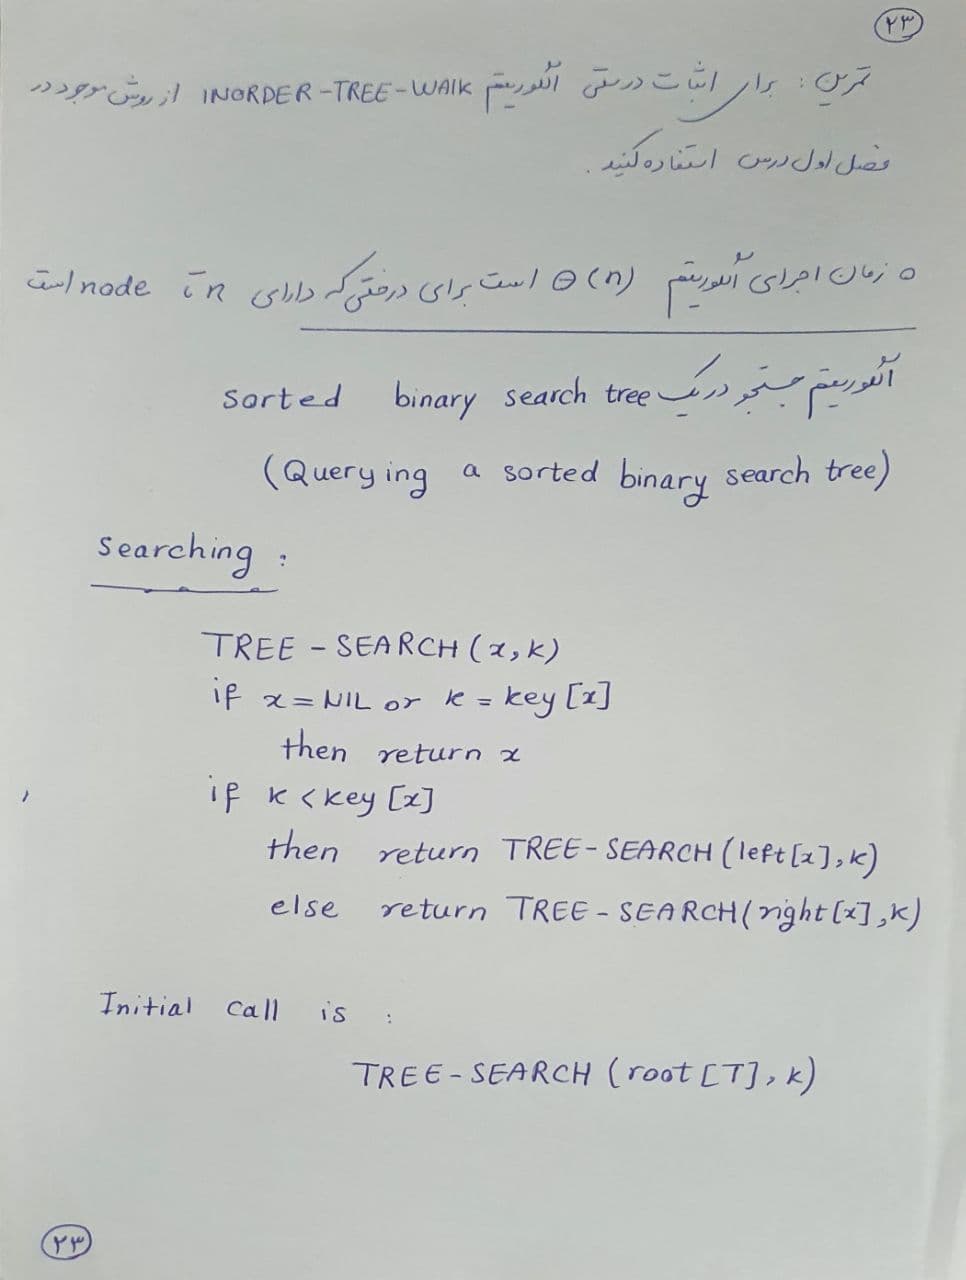 ۲۳
تمرین : برای اثبات درستی الگوریتم INORDER-TREE-WALK از روش موجود در
فصل اول درس استفاده کنید .
○ زمان اجرای الگوریتم Θ(n) است برای درختی که دارای n تا node است
الگوریتم جستجو در یک sorted binary search tree
(Querying a sorted binary search tree)
Searching :
TREE - SEARCH (x, k)
if x = NIL or k = key [x]
then return x
if k < key [x]
then return TREE - SEARCH (left [x], k)
else return TREE - SEARCH (right [x], k)
Initial call is :
TREE - SEARCH (root [T], k)
۲۳